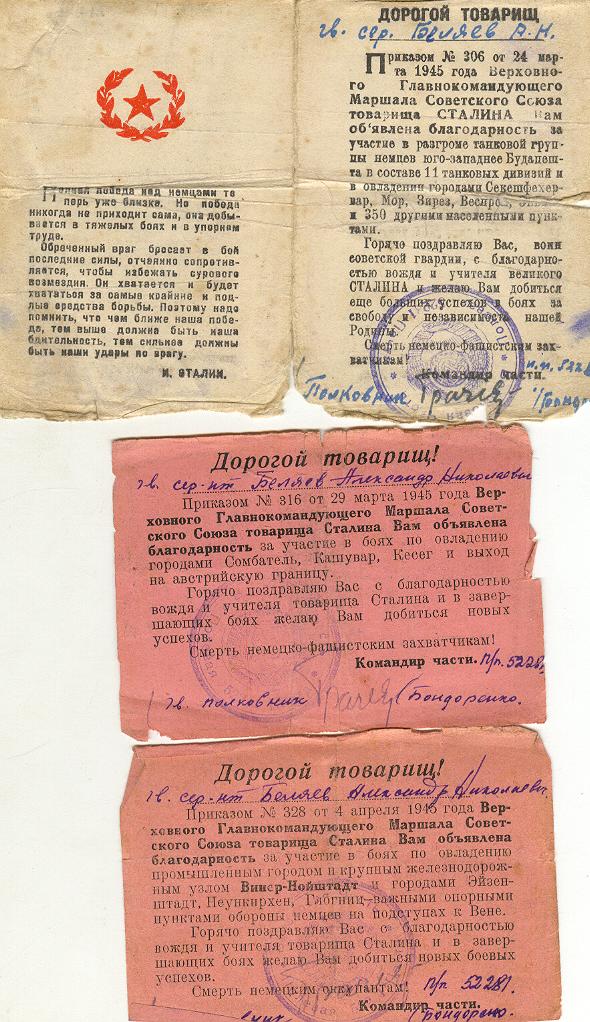 Полная победа над немцами те
перь уже близка. Но победа
никогда не приходит сама, она добы-
вается в тяжелых боях и в упорном
труде.
Обреченный враг бросает в бой
последние силы, отчаянно сопротив-
ляется, чтобы избежать сурового
возмездия. Он хватается и будет
хвататься за самые крайние и под-
лые средства борьбы. Поэтому надо
помнить, что чем ближе наша побе-
да, тем выше должна быть наша
бдительность, тем сильнее должны
быть наши удары по врагу.
И. СТАЛИН.
ДОРОГОЙ ТОВАРИЩ
гв. сер. Беляев А.Н.
Приказом № 306 от 24 мар-
та 1945 года Верховно-
го Главнокомандующего
Маршала Советского Союза
товарища СТАЛИНА Вам
об'явлена благодарность за
участие в разгроме танковой груп-
пы немцев юго-западнее Будапеш-
та в составе 11 танковых дивизий и
в овладении городами Секешфехер-
вар, Мор, Зирез, Веспрем,
и 350 другими населенными пунк-
тами.
Горячо поздравляю Вас, воин
советской гвардии, с благодарно-
стью вождя и учителя великого
СТАЛИНА и желаю Вам добиться
еще больших успехов в боях за
свободу и независимость нашей
Родины.
Смерть немецко-фашистским зах-
ватчикам!
Командир части.
Полковник
Дорогой товарищ!
гв. сер-нт Беляев Александр Николаевич
Приказом № 316 от 29 марта 1945 года Вер-
ховного Главнокомандующего Маршала Совет-
ского Союза товарища Сталина Вам объявлена
благодарность за участие в боях по овладению
городами Сомбатель, Капувар, Кесег и выход
на австрийскую границу.
Горячо поздравляю Вас с благодарностью
вождя и учителя товарища Сталина и в завер-
шающих боях желаю Вам добиться новых
успехов.
Смерть немецко-фашистским захватчикам!
Командир части. П/п. 52281
гв. полковник (Бондоренко.
Дорогой товарищ!
гв. сер-нт Беляев Александр Николаевич.
Приказом № 328 от 4 апреля 1945 года Вер-
ховного Главнокомандующего Маршала Совет-
ского Союза товарища Сталина Вам объявлена
благодарность за участие в боях по овладению
промышленным городом и крупным железнодорож-
ным узлом Винер-Нойштадт и городами Эйзен-
штадт, Неункирхен, Глогниц—важными опорными
пунктами обороны немцев на подступах к Вене.
Горячо поздравляю Вас с благодарностью
вождя и учителя товарища Сталина и в завер-
шающих боях желаю Вам добиться новых боевых
успехов.
Смерть немецким оккупантам! П/п 52281.
Командир части.
(Бондорено.